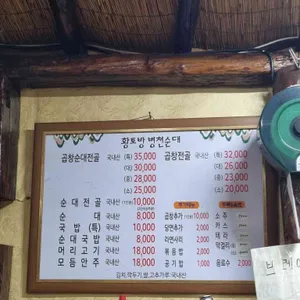 황토방 병천순대
곱창순대전골 국내산 (특) 35,000
(대) 30,000
(중) 28,000
(소) 25,000
곱창전골 국내산 (특) 32,000
(대) 26,000
(중) 23,000
(소) 20,000
순대전골 국내산 10,000
순대 국내산 8,000
국밥(특) 국내산 10,000
순대국밥 국내산 8,000
머리고기 국내산 18,000
모듬안주 국내산 18,000
곱창추가 10,000
당면추가 2,000
라면사리 2,000
볶음밥 2,000
공기밥 1,000
소주
카스
테라
막걸리
음료수 2,000
김치,깍두기,쌀,고추가루:국내산
브레이